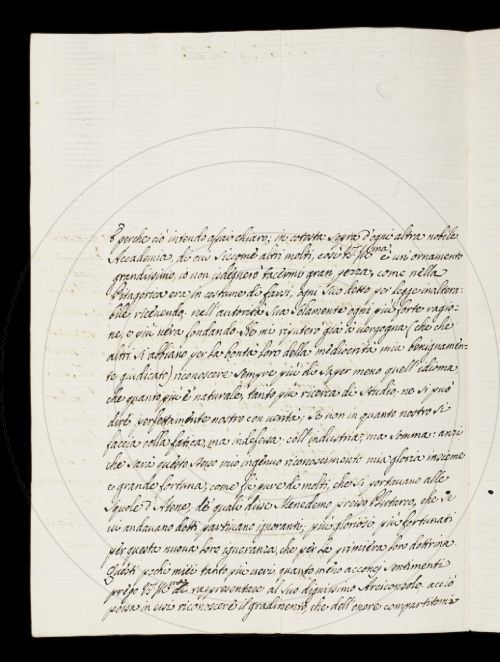 E perche ciò intendo assai chiaro; in cotesta sopra d'ogni altra nobile
Accademia, di cui siccome altri molti, così V.S. Ill.ma è un ornamento
grandissimo, io non isdegnerò tacermi gran pezza, come nella
Pitagorica era in costume di farsi, ogni suo detto per legge inaltera:
bile ricevendo, nell'autorità sua solamente ogni più forte ragio:
ne, e più vera fondando. Ne mi reputerò già a vergogna (che che
altri si abbiano per la bontà loro della mediocrità mia benignamen:
te giudicato) riconoscere sempre più di saper meno quell'idioma,
che quanto più è naturale, tanto più ricerca di studio, ne si può
dire perfettamente nostro con verità; se non in quanto nostro si
faccia colla fatica, ma indefessa: coll'industria, ma somma: anzi
che sarà questo stesso mio ingenuo riconoscimento mia gloria insieme
e grande fortuna, come fù pure di molti, che si portavano alle
Scuole d'Atene, de' quali disse Menedemo presso Plutarco, che se
vi andavano dotti partivano ignoranti; più gloriosi, più fortunati
per questa nuova loro ignoranza, che per la primiera loro dottrina.
Questi pochi miei tanto più veri, quanto meno acconci sentimenti
prego V.S. Ill.ma di rappresentare al suo dignissimo Arciconsolo, acciò
possa in essi riconoscere il gradimento, che dell'onore compartitomi